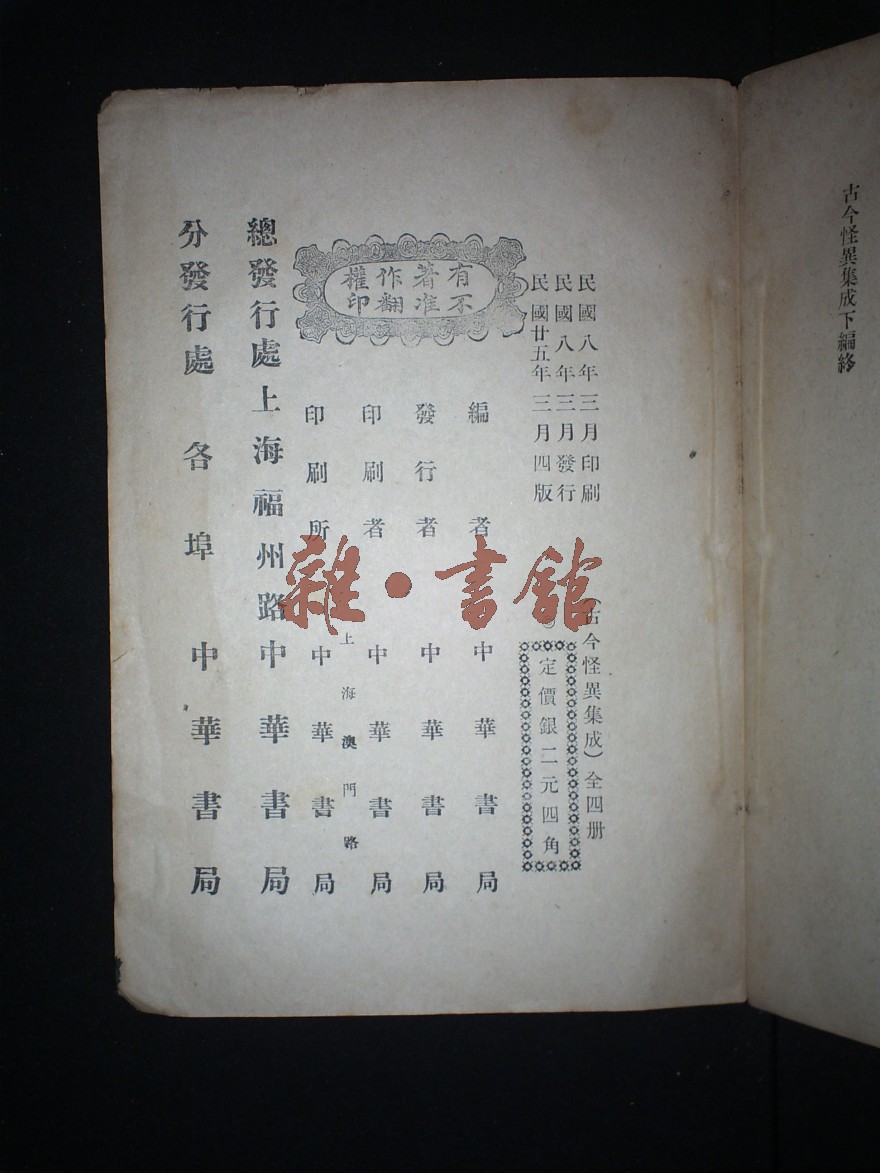 古今怪異集成下編終
民國八年三月印刷
民國八年三月發行
民國廿五年三月四版
（古今怪異集成）全四册
定價銀二元四角
有著作權
不准翻印
編者 中華書局
發行者 中華書局
印刷者 中華書局
印刷所 上海澳門路 中華書局
總發行處 上海福州路 中華書局
分發行處 各埠 中華書局
雜·書館